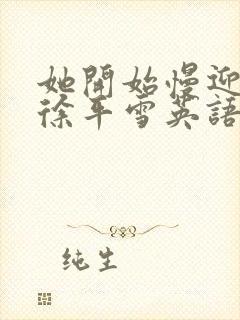 她開始慢迎
徐平雪英語
纯生